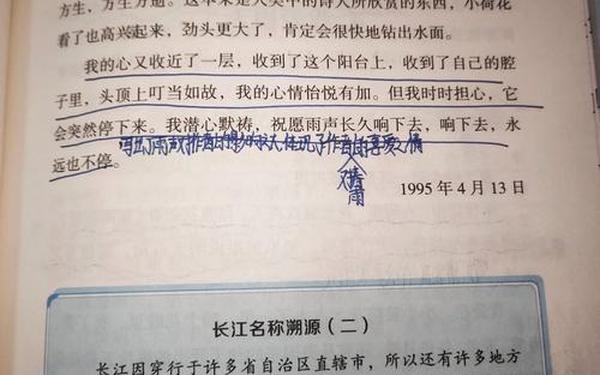 方生，万生方适。这本来是人类中的诗人所欣赏的东西，小荷花
看了也高兴起来，劲头更大了，肯定会很快地钻出水面。
我的心又收近了一层，收到了这个阳台上，收到了自己的腔
子里，头顶上叮当如故，我的心情怡悦有加。但我时时担心，它
会突然停下来。我潜心默祷，祝愿雨声长久响下去，响下去，永
远也不停。
写出了雨声对作者的影响
体现了作者的喜爱之情
对春雨
1995年4月13日
长江名称溯源（二）
长江因穿行于许多省自治区直辖市，所以还有许多地方